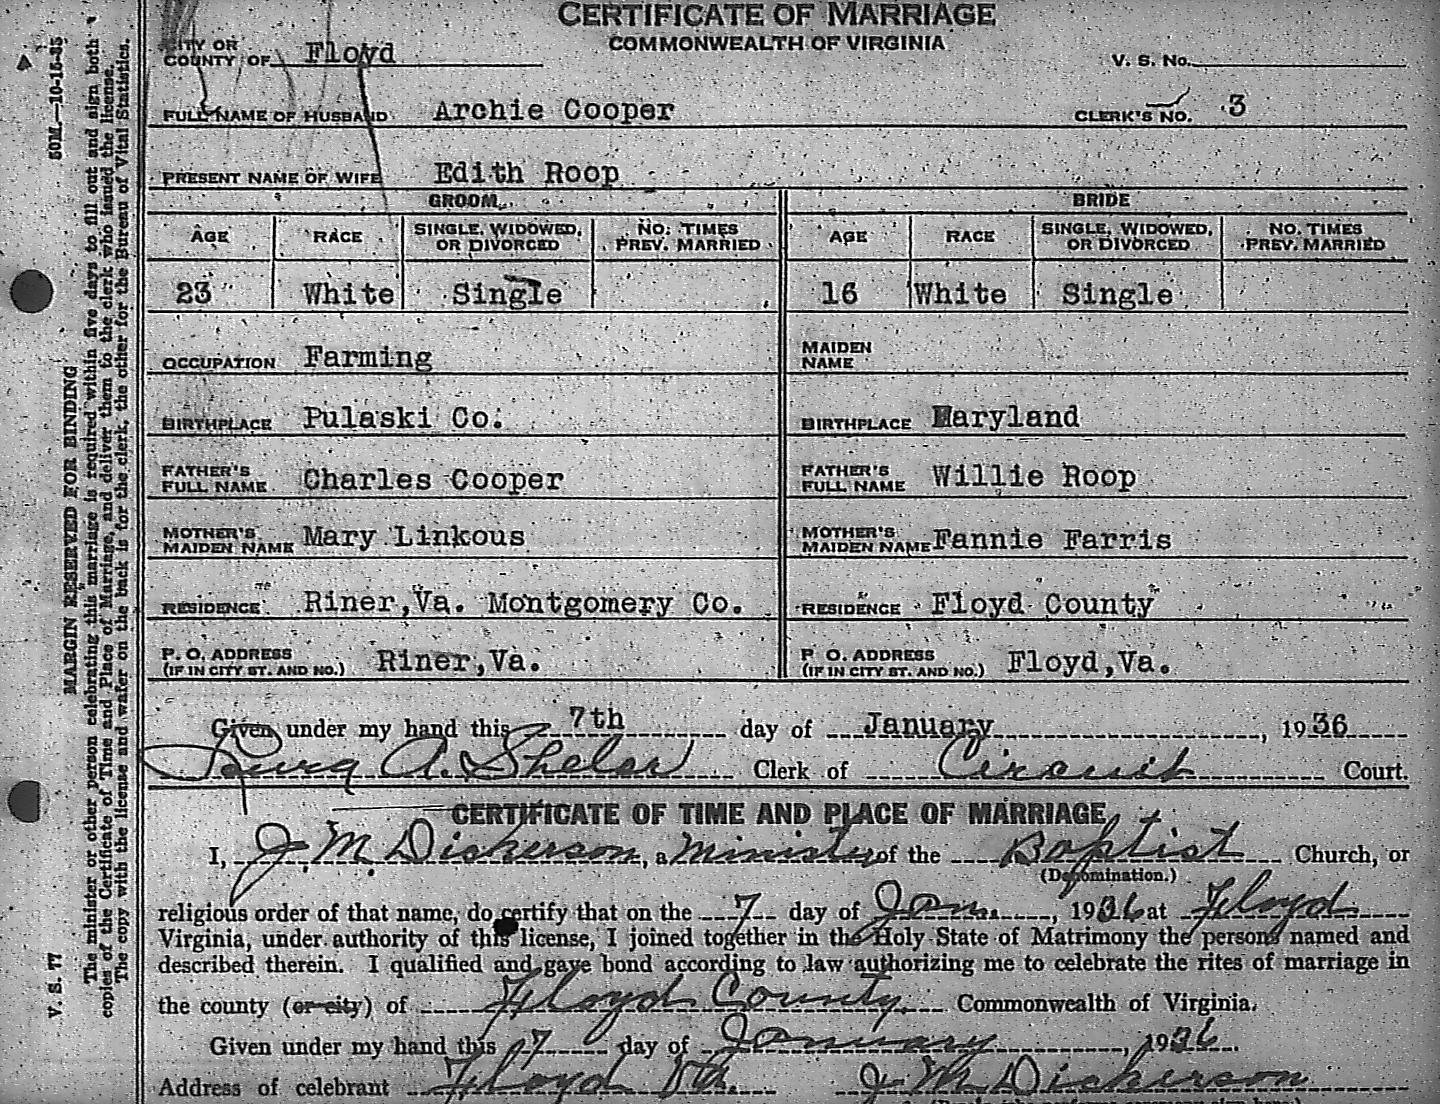 CERTIFICATE OF MARRIAGE
COMMONWEALTH OF VIRGINIA
CITY OR
COUNTY OF Floyd
V. S. No.
FULL NAME OF HUSBAND Archie Cooper CLERK'S NO. 3
PRESENT NAME OF WIFE Edith Roop
GROOM BRIDE
AGE RACE SINGLE, WIDOWED, OR DIVORCED NO. TIMES PREV. MARRIED AGE RACE SINGLE, WIDOWED, OR DIVORCED NO. TIMES PREV. MARRIED
23 White Single 16 White Single
OCCUPATION Farming MAIDEN NAME
BIRTHPLACE Pulaski Co. BIRTHPLACE Maryland
FATHER'S FULL NAME Charles Cooper FATHER'S FULL NAME Willie Roop
MOTHER'S MAIDEN NAME Mary Linkous MOTHER'S MAIDEN NAME Fannie Farris
RESIDENCE Riner,Va. Montgomery Co. RESIDENCE Floyd County
P. O. ADDRESS (IF IN CITY ST. AND NO.) Riner,Va. P O. ADDRESS (IF IN CITY ST. AND NO.) Floyd,Va.
Given under my hand this 7th day of January, 1936
A. Shelor Clerk of Circuit Court.
CERTIFICATE OF TIME AND PLACE OF MARRIAGE
I, J. M. Dickerson, a Minister of the Baptist Church, or
(Denomination.)
religious order of that name, do certify that on the 7 day of Jan., 1936 at Floyd
Virginia, under authority of this license, I joined together in the Holy State of Matrimony the persons named and
described therein. I qualified and gave bond according to law authorizing me to celebrate the rites of marriage in
the county (or city) of Floyd County. Commonwealth of Virginia.
Given under my hand this 7 day of January, 1936.
Address of celebrant Floyd Va. J M Dickerson
50M.—10-15-35
MARGIN RESERVED FOR BINDING
V. S. 77
The minister or other person celebrating this marriage is required within five days to fill out and sign both
copies of the Certificate of Time and Place of Marriage, and deliver them to the clerk who issued the license.
The copy with the license and wafer on the back is for the clerk, the other for the Bureau of Vital Statistics.